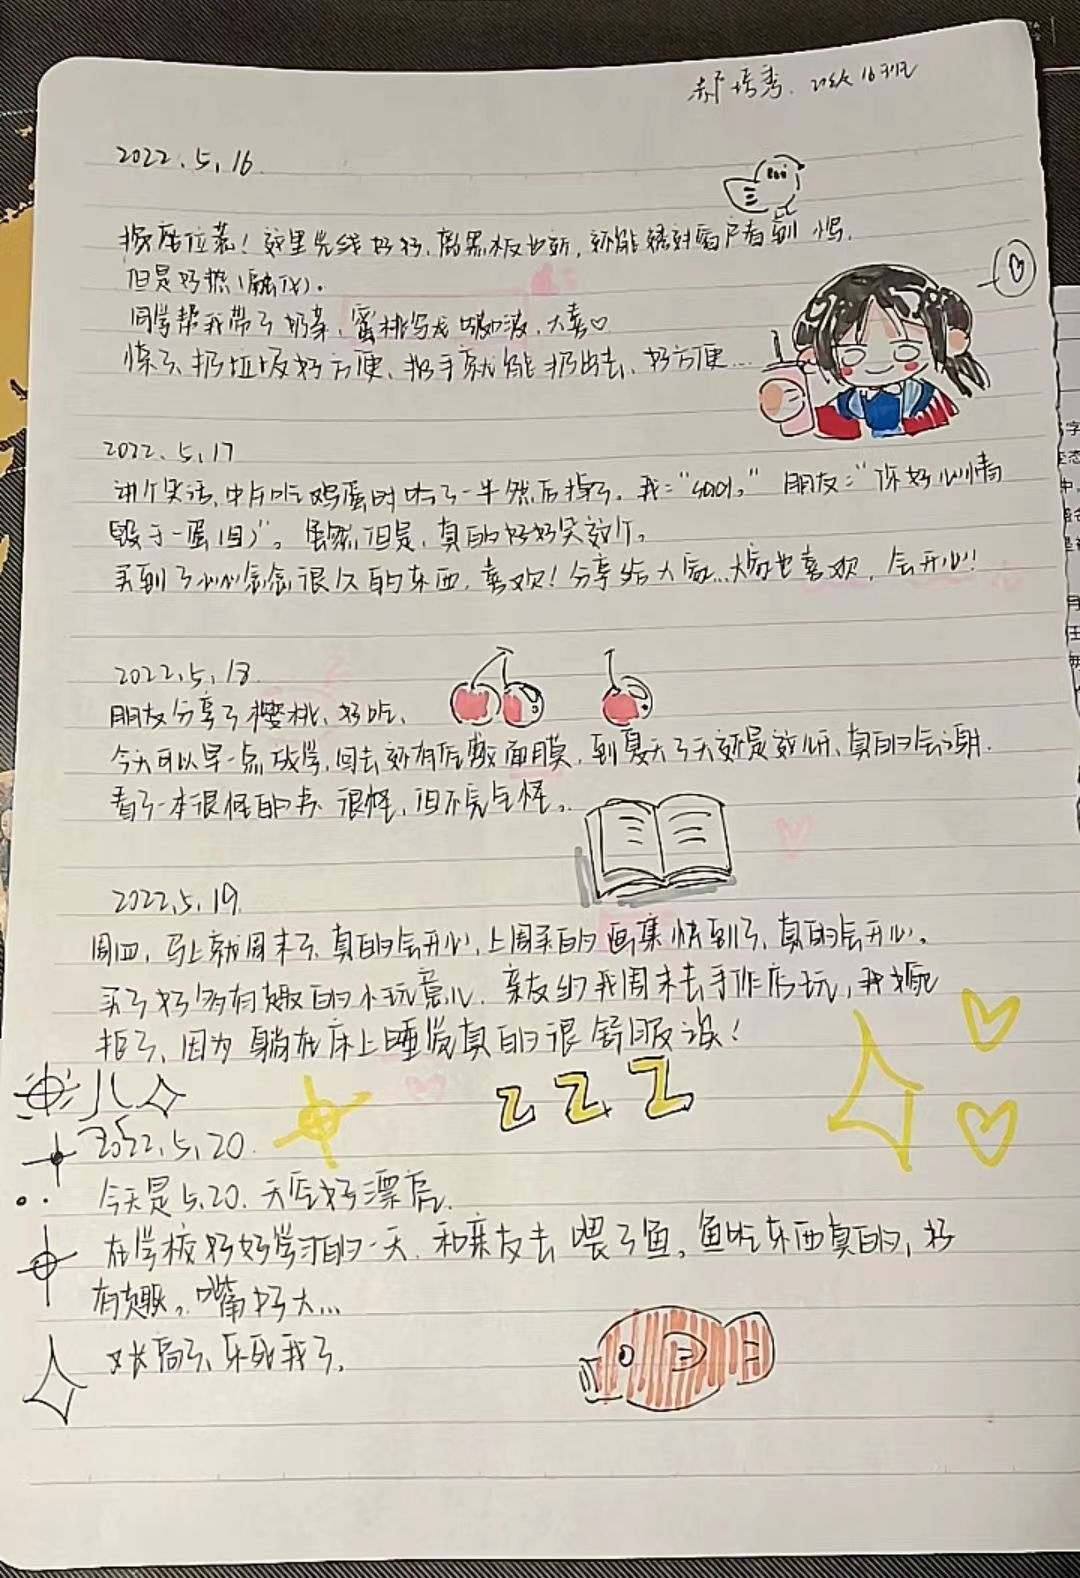 郝培秀. 21级16班
2022.5.16
换座位惹！这里光线好好,离黑板也近,还能透过窗户看到鸟.
但是好热(融化)。
同学帮我带了奶茶,蜜桃乌龙啵啵,大喜♡
惊了,扔垃圾好方便,抬手就能扔出去,好方便...
2022.5.17
讲个笑话,中午吃鸡蛋时吃了一半然后掉了。我:“sad。” 朋友:“你好心情
毁于一蛋(旦)”。虽然但是,真的好好笑这个。
买到了心心念念很久的东西,喜欢!分享给大家...大家也喜欢,会开心!
2022.5.18
朋友分享了樱桃,好吃.
今天可以早一点放学,回去还有后敷面膜,到夏天了天还是,真的会谢.
看了一本很怪的书 很怪,但不完全怪。
2022.5.19
周四,马上就周末了,真的会开心,上周买的画集快到了,真的会开心。
买了好多有趣的小玩意儿.亲友约我周末去手作店玩,我婉
拒了,因为躺在床上睡觉真的很舒服诶!
z z z
2022.5.20
今天是5.20.天气好漂亮.
在学校好好学习的一天.和亲友去喂了鱼。鱼吃东西真的,好
有趣。嘴好大...
又长高了,乐死我了。